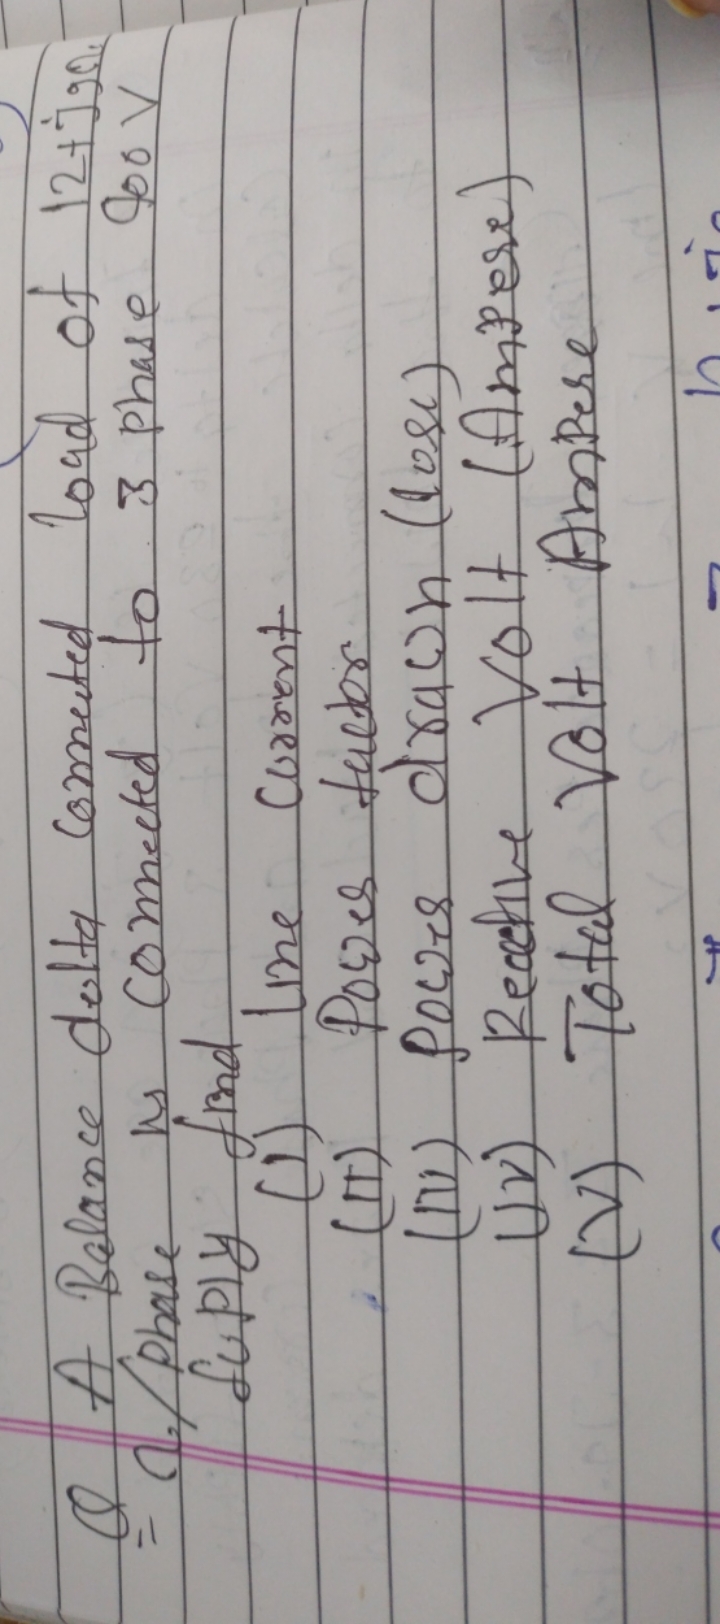 Q A Balance delta connected load of 12+j9Ω
Ω/Phase is connected to 3 phase 400 V
suply find
(I) Line current
(II) Power factor
(III) Power drawn (loss)
(IV) Reactive Volt (Ampere)
(V) Total Volt Ampere